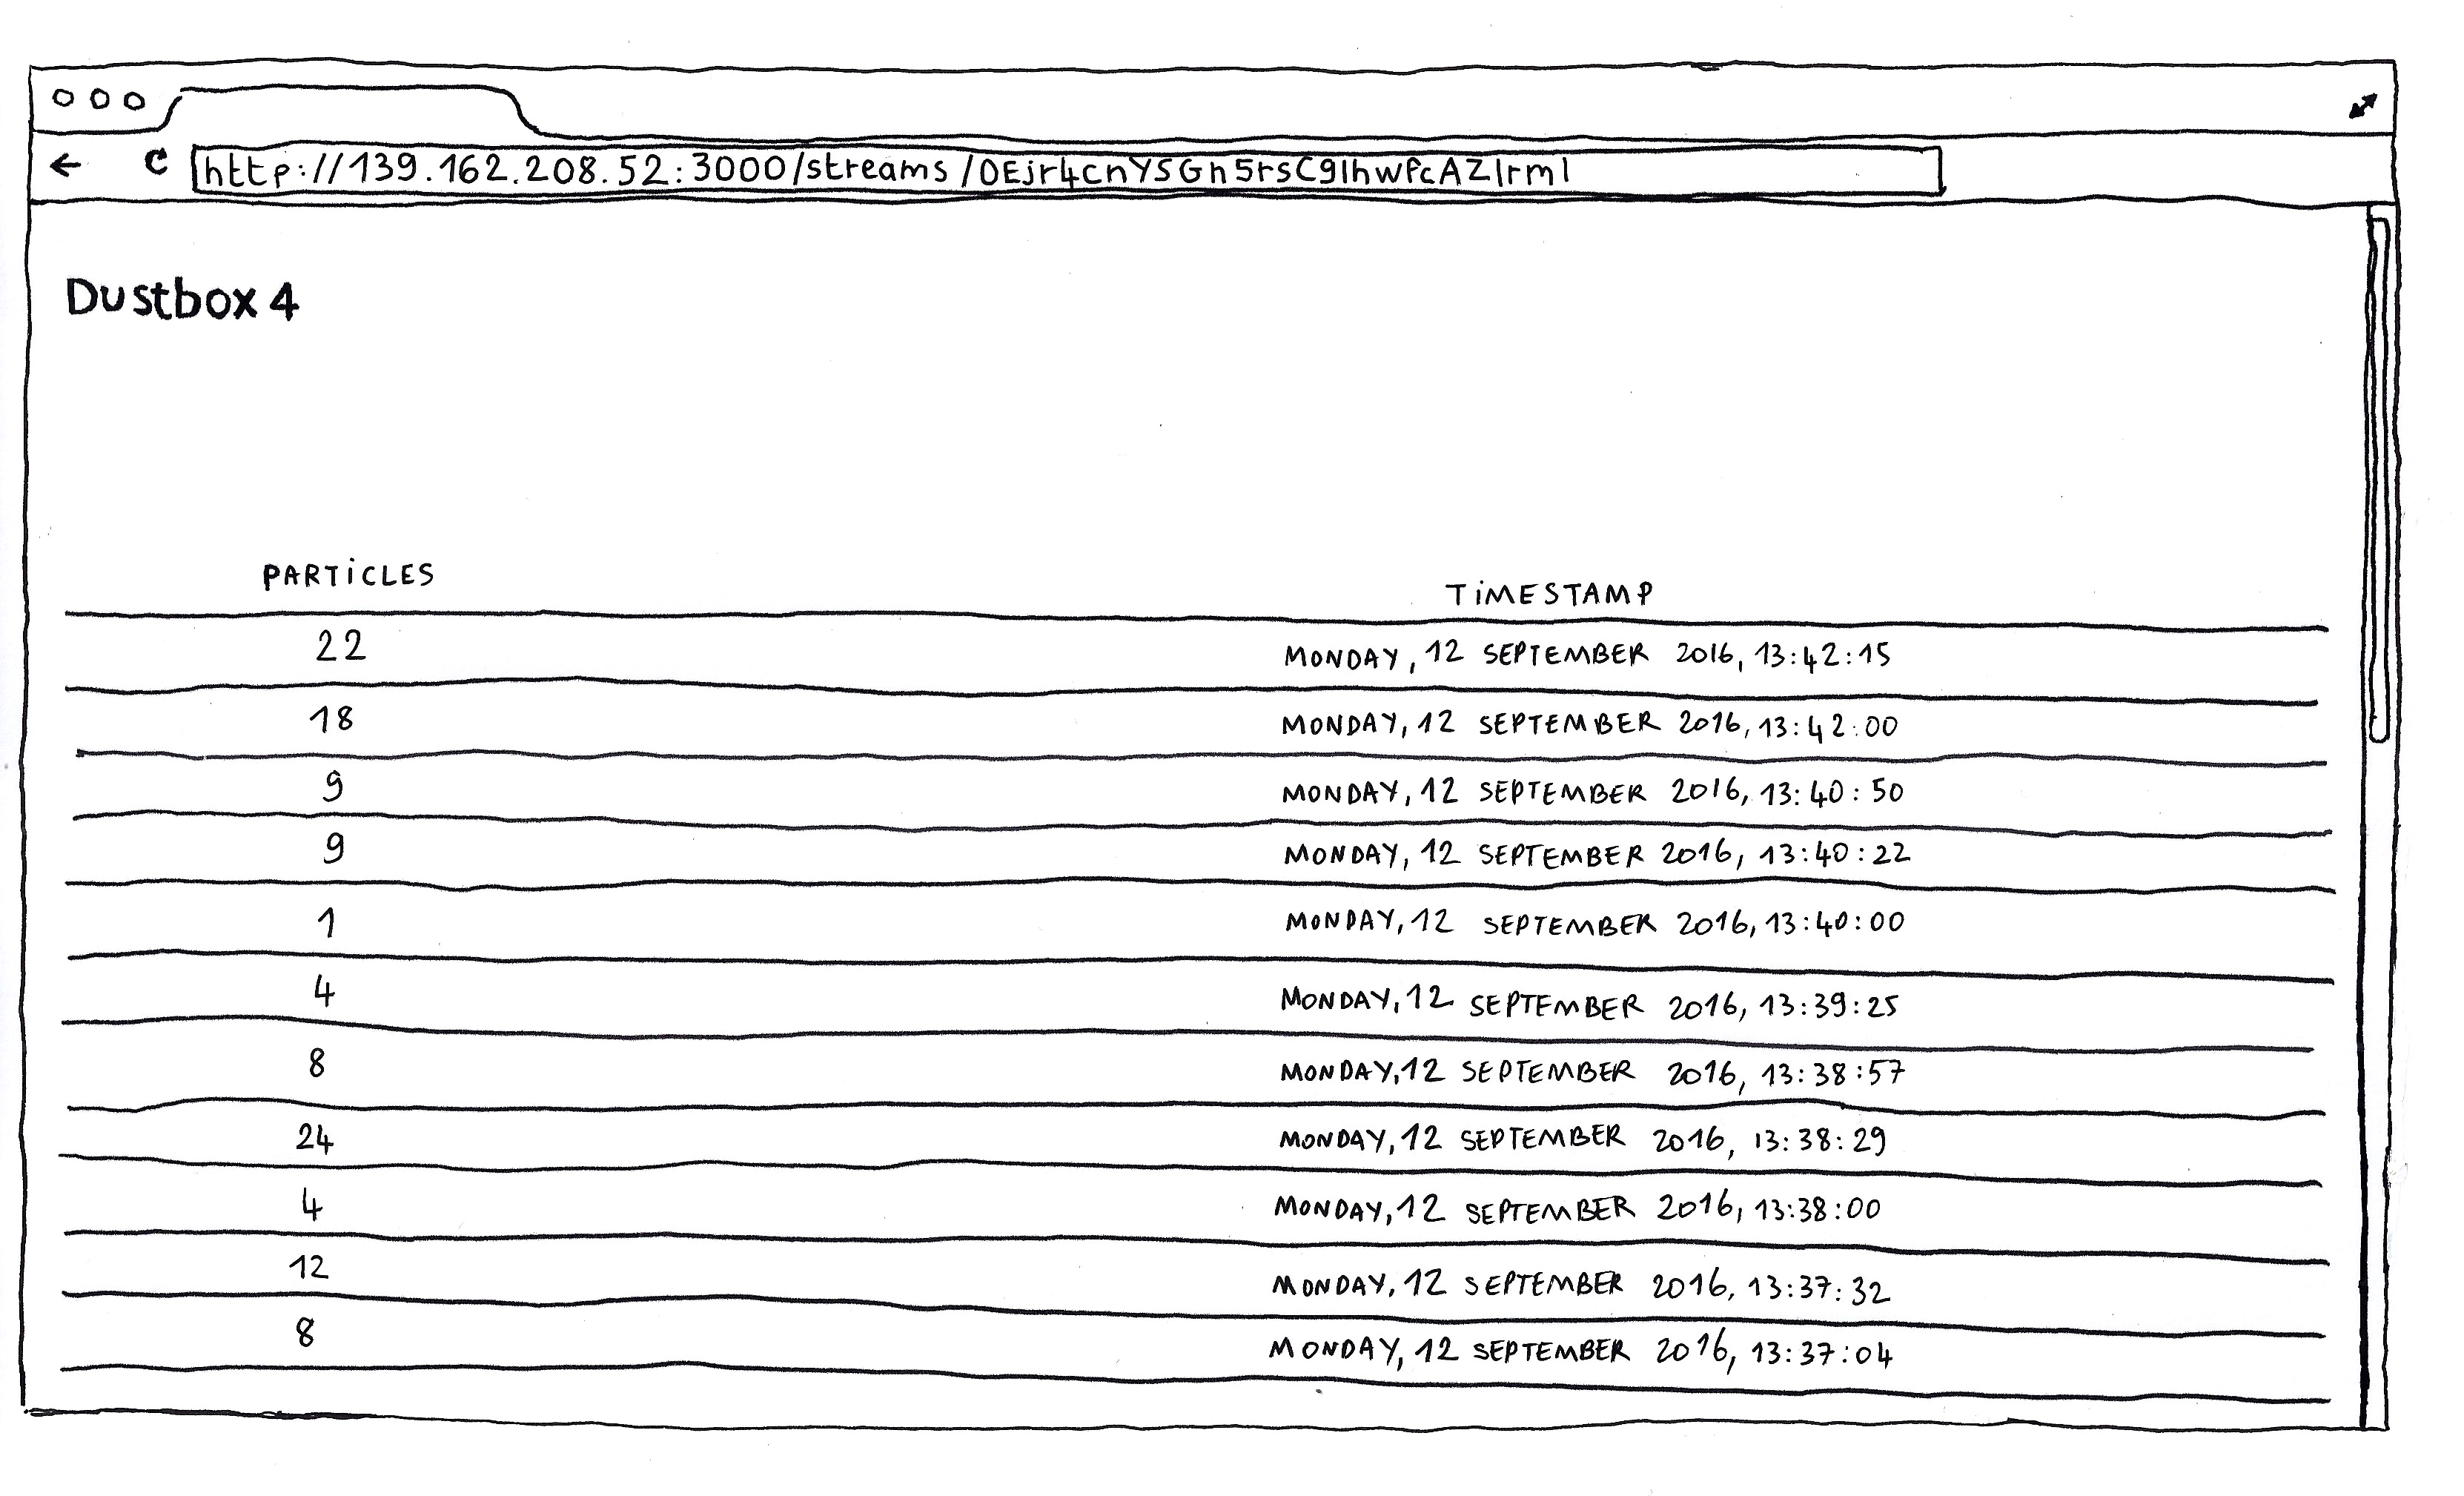 http://139.162.208.52:3000/streams/0Ejr4cnYSGh5rsC9lhwPcAZlrml
Dustbox 4
PARTiCLES TiMESTAMP
22 MONDAY, 12 SEPTEMBER 2016, 13:42:15
18 MONDAY, 12 SEPTEMBER 2016, 13:42:00
9 MONDAY, 12 SEPTEMBER 2016, 13:40:50
9 MONDAY, 12 SEPTEMBER 2016, 13:40:22
1 MONDAY, 12 SEPTEMBER 2016, 13:40:00
4 MONDAY, 12 SEPTEMBER 2016, 13:39:25
8 MONDAY, 12 SEPTEMBER 2016, 13:38:57
24 MONDAY, 12 SEPTEMBER 2016, 13:38:29
4 MONDAY, 12 SEPTEMBER 2016, 13:38:00
12 MONDAY, 12 SEPTEMBER 2016, 13:37:32
8 MONDAY, 12 SEPTEMBER 2016, 13:37:04